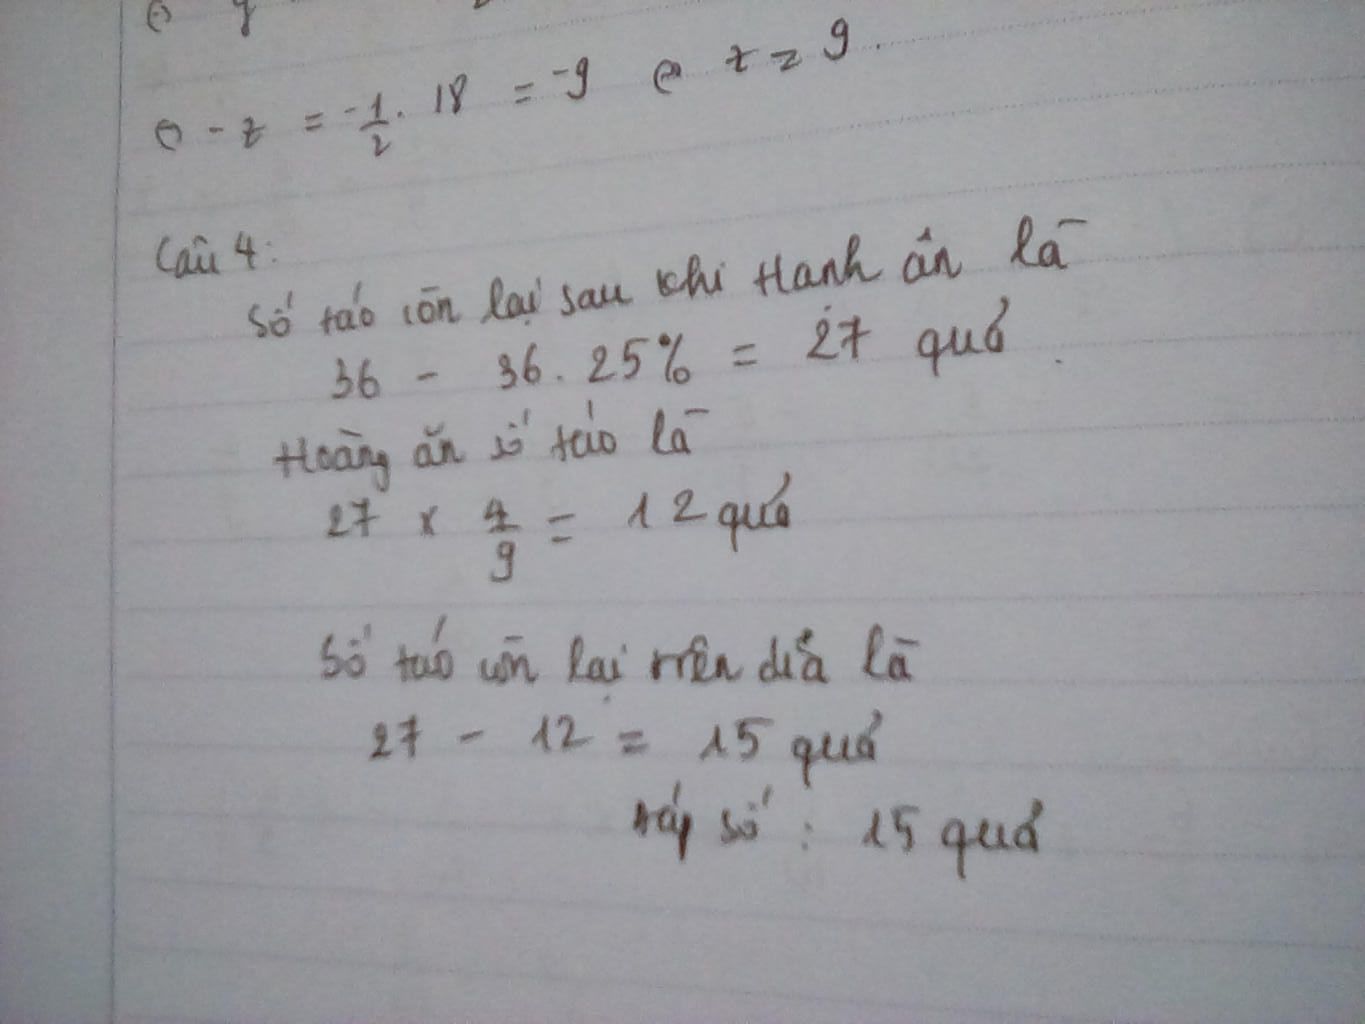 ⇔ - z = -1/2 . 18 = -9 ⇔ z = 9.
Câu 4:
Số táo còn lại sau khi Hanh ăn là
36 - 36. 25% = 27 quả.
Hoàng ăn số táo là
27 x 4/9 = 12 quả
Số táo còn lại trên dĩa là
27 - 12 = 15 quả
Đáp số : 15 quả